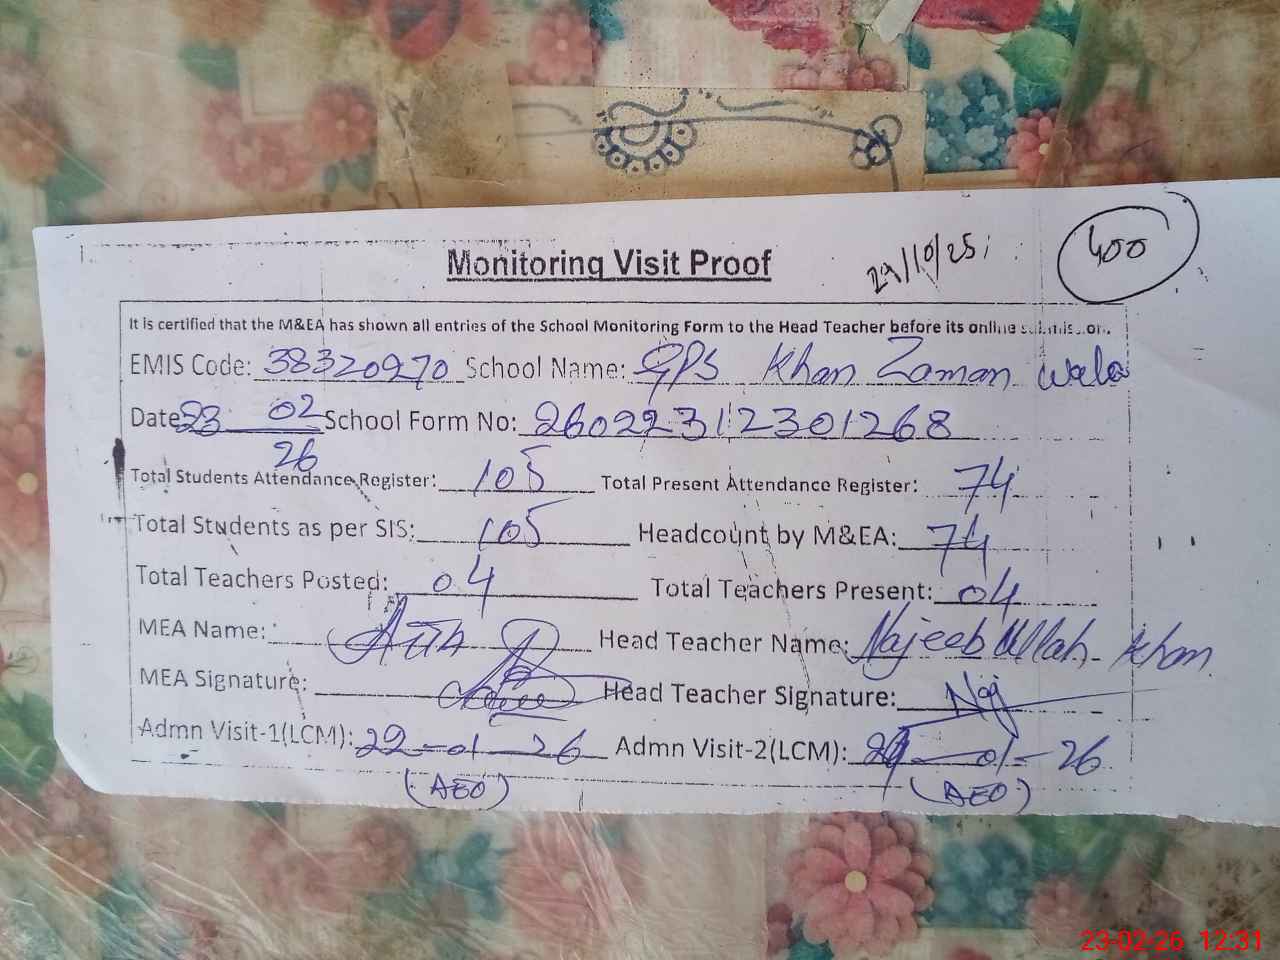 Monitoring Visit Proof
29/10/25
400
It is certified that the M&EA has shown all entries of the School Monitoring Form to the Head Teacher before its online submission.
EMIS Code: 38320970 School Name: GPS Khan Zaman Wala
Date 23 02 26 School Form No: 26022312301268
Total Students Attendance Register: 105 Total Present Attendance Register: 74
Total Students as per SIS: 105 Headcount by M&EA: 74
Total Teachers Posted: 04 Total Teachers Present: 04
MEA Name: Head Teacher Name: Najeeb Ullah Khan
MEA Signature: Head Teacher Signature: Naj
Admn Visit-1(LCM): 22-01-26 Admn Visit-2(LCM): 29-01-26
(AEO) (AEO)
23-02-26 12:31